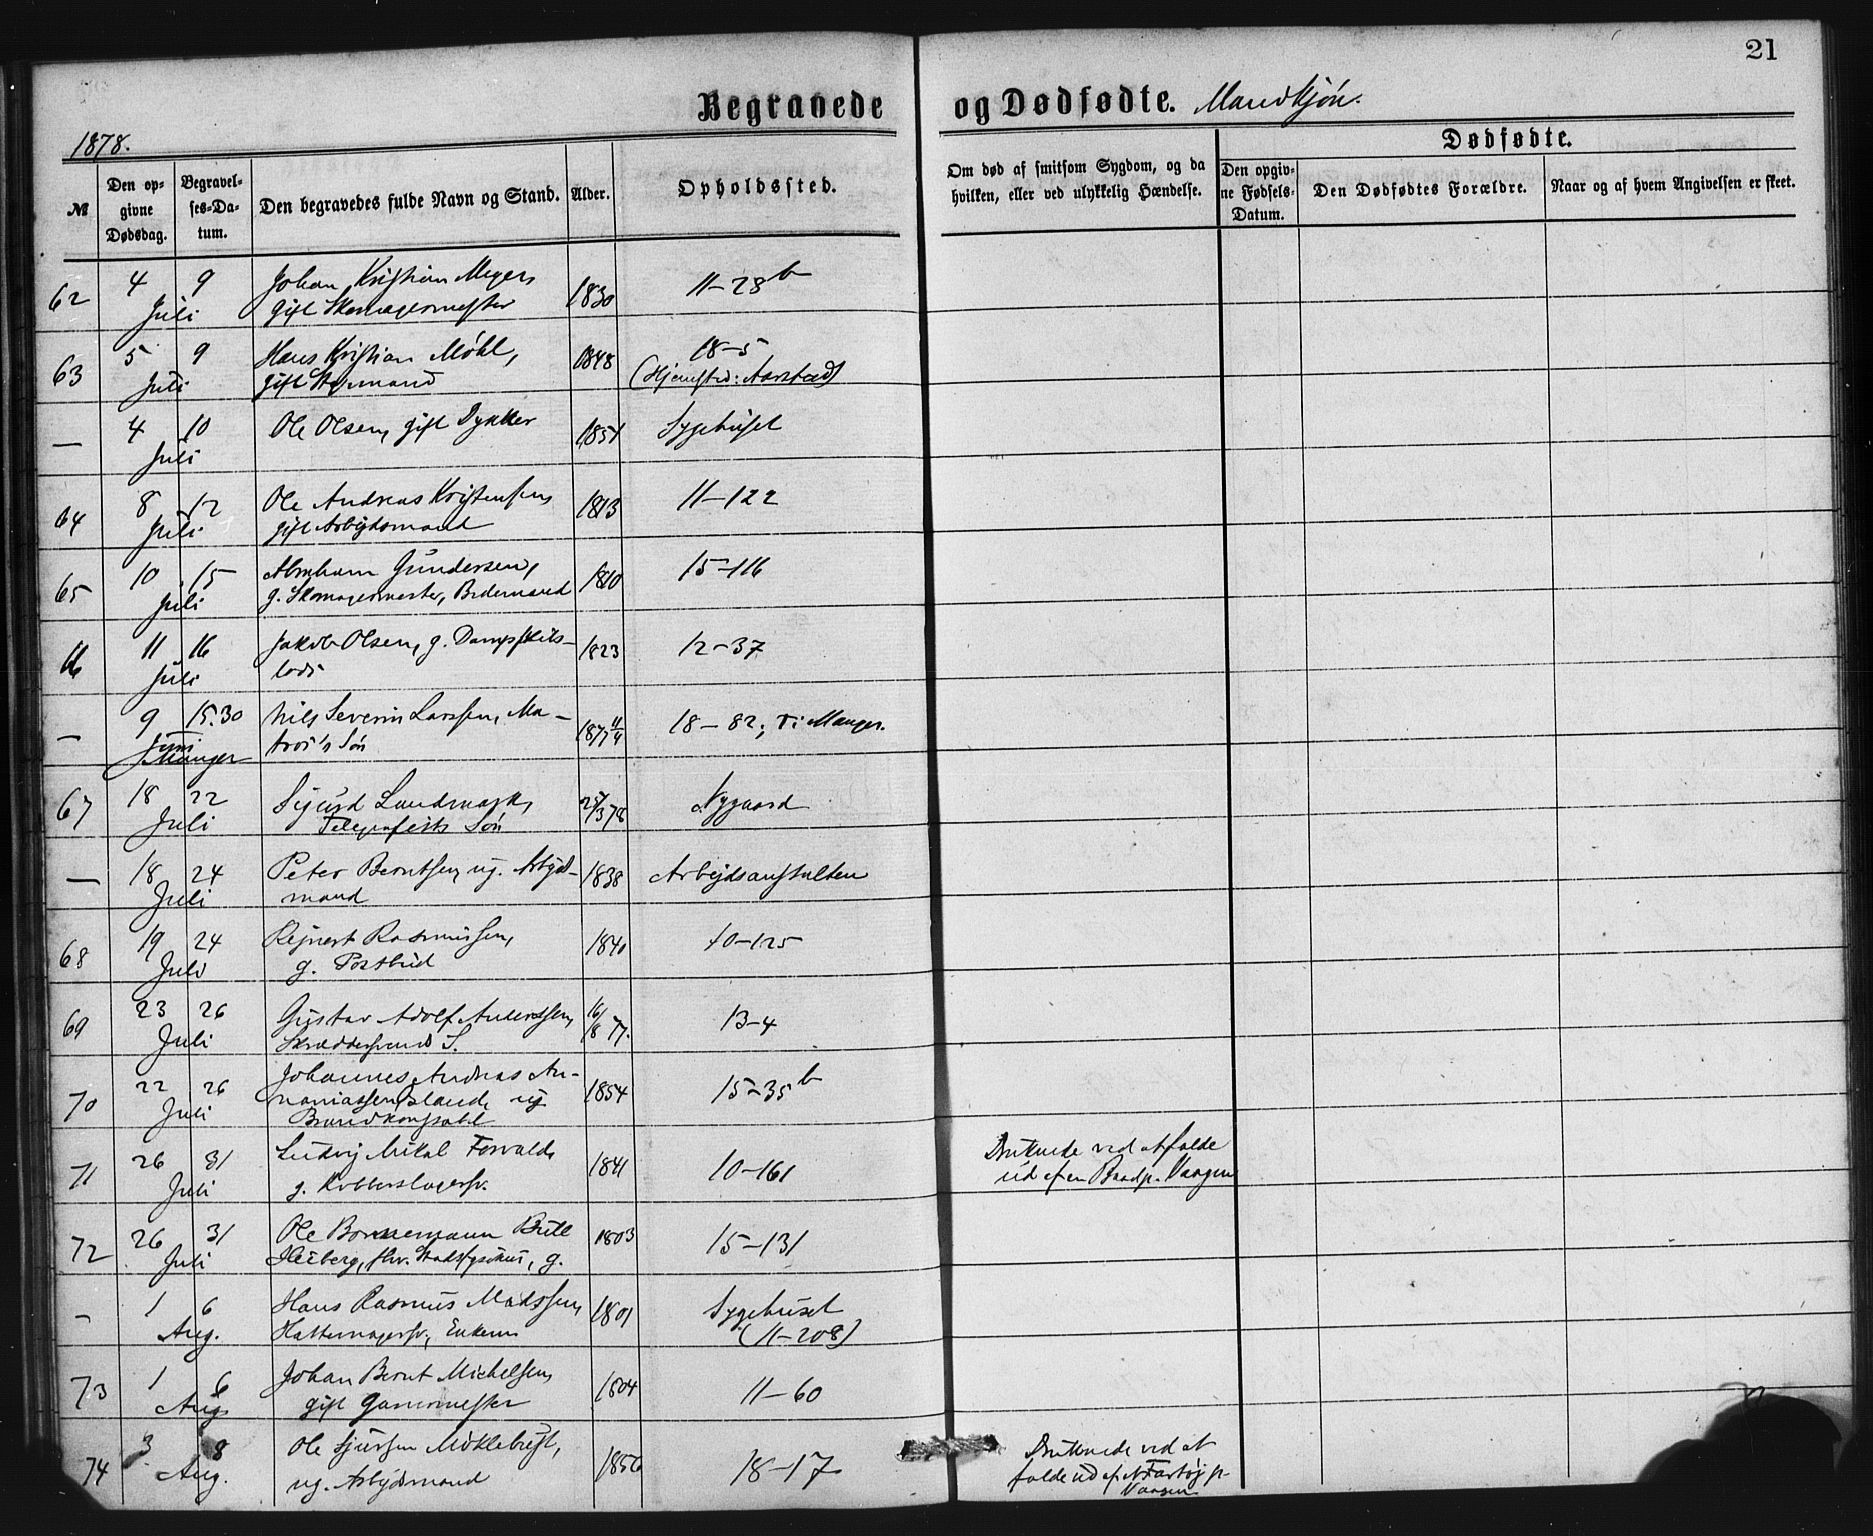 21
Begravede og Dødfødte. Mandkjøn.
1878.
Dødfødte.
№
Den op-
givne
Dødsdag.
Begravel-
ses-Da-
tum.
Den begravedes fulde Navn og Stand.
Alder.
Opholdssted.
Om død af smitsom Sygdom, og da
hvilken, eller ved ulykkelig Hændelse.
Den opgiv-
ne Fødsels-
Datum.
Den Dødfødtes Forældre.
Naar og af hvem Angivelsen er skeet.
62 4 9 Johan Kristian Meyer, 1830 11-28b
Juli gift Skomagermester
63 5 9 Hans Kristian Møhl, 1848 18-5
Juli gift Styrmand (Hjemsted: Aarstad)
— 4 10 Ole Olsen, gift Dykker 1851 Sygehuset
Juli
64 8 12 Ole Andreas Kristensen, 1813 11-122
Juli gift Arbejdsmand
65 10 15 Abraham Gundersen, 1810 15-116
Juli g. Skomagermester, Bedemand
66 11 16 Jakob Olsen, g. Dampskibs- 1823 12-37
Juli lods
— 9 15.30 Nils Severin Larssen, Ma- 1877 11/4 18-82; Ti Manger.
Juni tros's Søn
Manger
67 18 22 Sigurd Landmark, 25/3 78 Nygaard
Juli Telegrafists Søn
— 18 24 Peter Berntsen, ug. Arbejds- 1838 Arbejdsanstalten
Juli mand
68 19 24 Rejnert Rasmussen, 1840 10-125
Juli g. Postbud
69 23 26 Gustav Adolf Anderssen, 16/8 77. 13-4
Juli Skræddersvends S.
70 22 26 Johannes Andreas An- 1854 15-35b
Juli naniassen Island, ug
Brandkonstabel
71 26 31 Ludvig Mikal Forvald, 1841 10-161 Druknede ved at falde
Juli g. Kobberslagersv. ud af en Baad p. Vaagen
72 26 31 Ole Bornemann Bull 1803 15-131
Juli Heiberg, fhv. Stadsfysikus, g.
— 1 6 Hans Rasmus Madssen, 1801 Sygehuset
Aug. Hattemagersv., Enkem (11-208)
73 1 6 Johan Bernt Michelsen, 1804 11-60
Aug gift Garvermester
74 3 8 Ole Sjursen Møklebust, 1856 18-17 Druknede ved at
Aug. ug. Arbejdsmand falde ud af et Fartøj p.
Vaagen